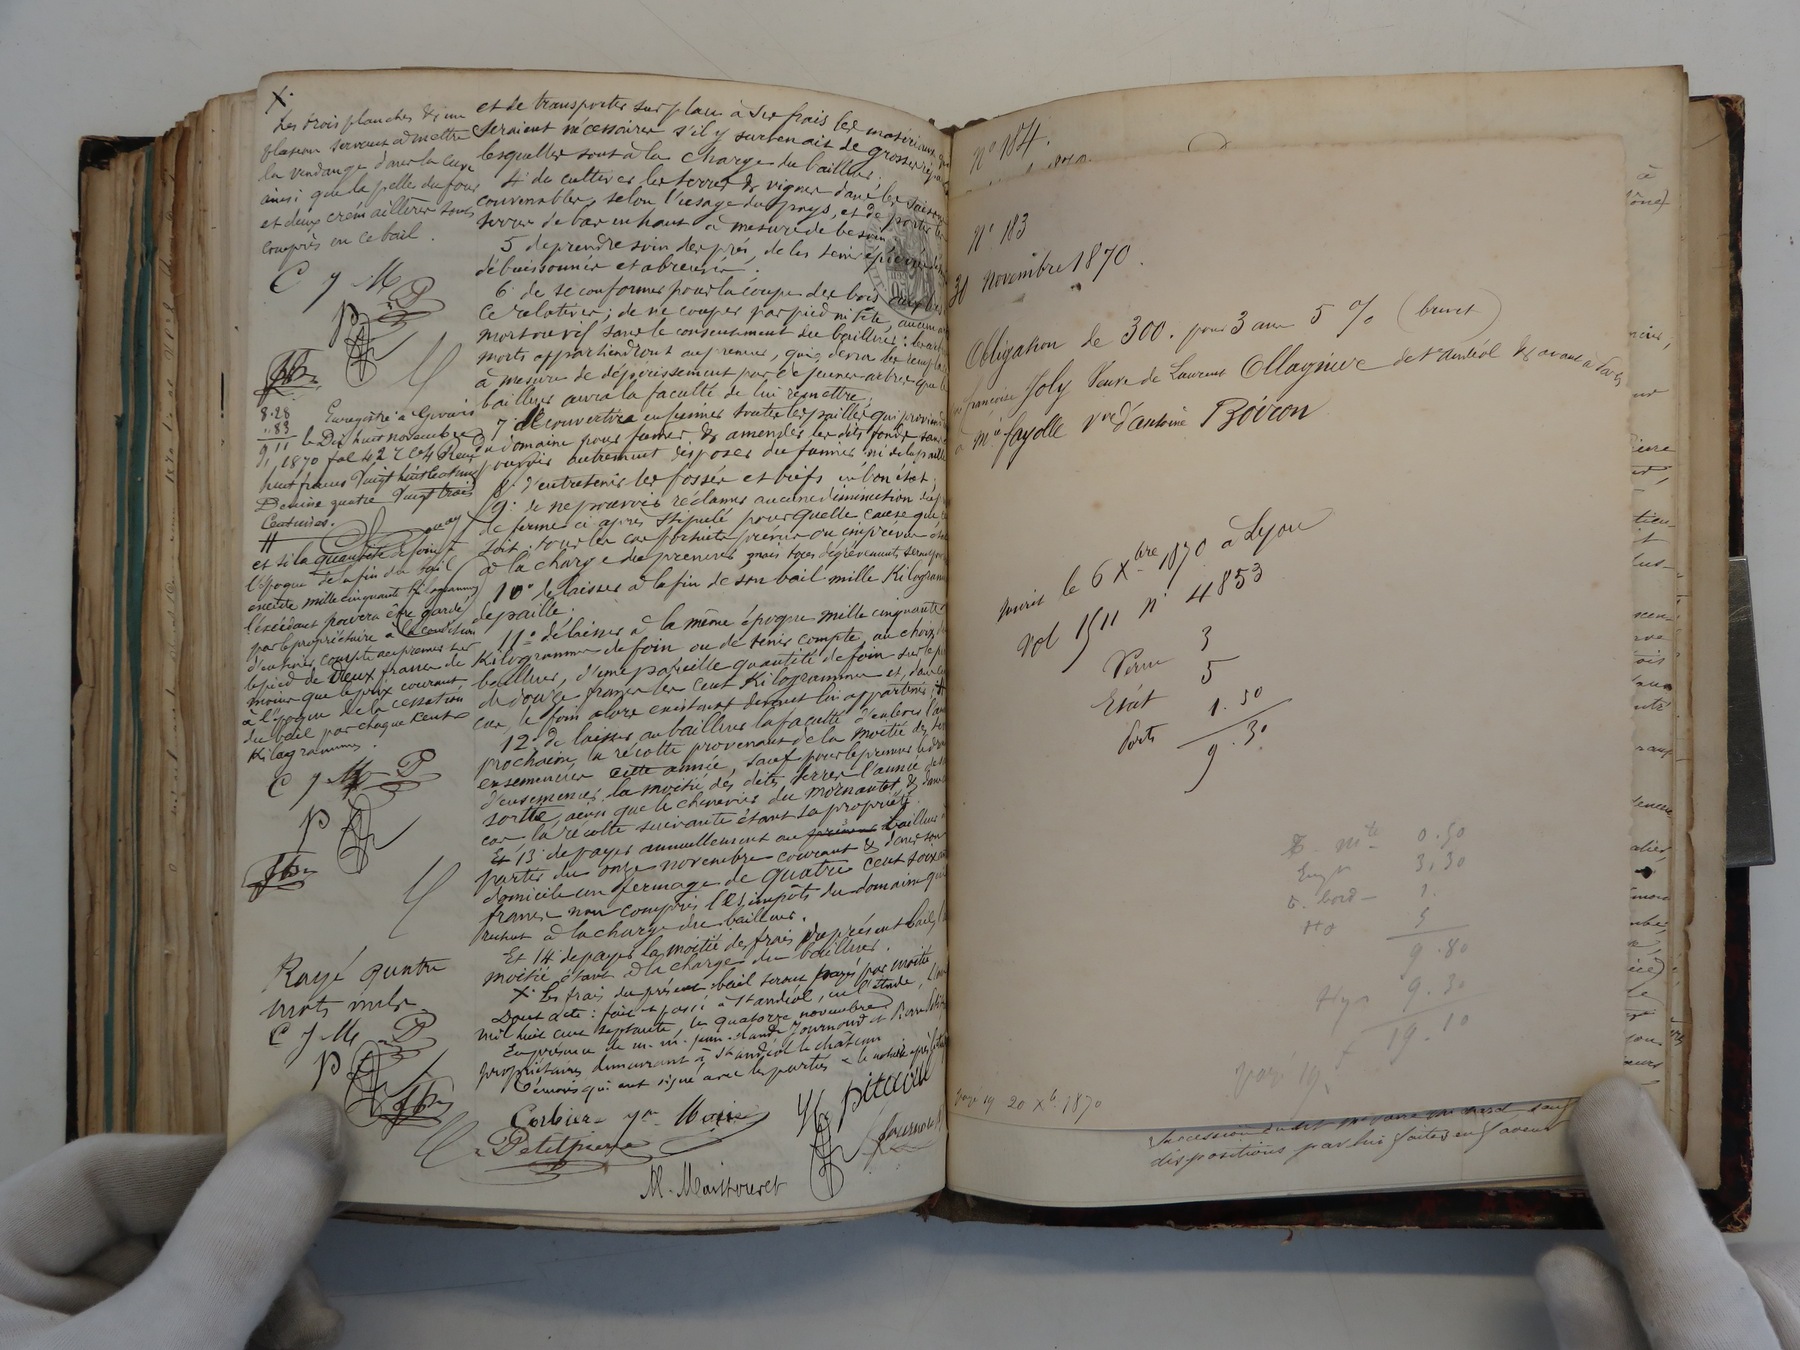 X.
Les trois planches & un
plateau servant à mettre
la vendange dans la cuve
ainsi que la pelle du four
et deux crémaillères sont
compris en ce bail.
C y M P
P
8.28
.83
9 11
Enregistré à Givors
le Dix huit novembre
1870 fol 42
huit francs vingt huit centimes
Decime quatre vingt trois
Centimes.
#
et si la quantité de foin à
l'époque de la fin du bail
excède mille cinquante kilogrammes
l'excédant pourra être gardé
par le propriétaire à la condition
d'en tenir compte au preneur sur
le pied de Deux francs de
moins que le prix courant
à l'époque de la cessation
du bail par chaque cent
Kilogrammes.
C y M P
P
Rayé quatre
mots nuls
C y M P
P
et de transporter sur place à ses frais les matériaux
seraient nécessaires s'il y survenait de grosses
lesquelles sont à la charge du bailleur;
4° de cultiver les terres & vignes dans les saisons
convenables, selon l'usage du pays, et de porter
terre de bas en haut à mesure de besoin;
5 de prendre soin des prés, de les tenir
débuissonnés et abreuvés.
6° de se conformer pour la coupe des bois aux
ce relatives; de ne couper par pied ni tête, aucun
mort ou vif sans le consentement du bailleur; les
morts appartiendront au preneur, qui devra les
à mesure de dépérissement par de jeunes arbres que le
bailleur aura la faculté de lui remettre;
7 de convertir en fumier toutes les pailles qui
du domaine pour fumer & amender les dits fonds sans
pouvoir autrement disposer du fumier ni de la paille
8° d'entretenir les fossés et biefs en bon état;
9° de ne pouvoir réclamer aucune diminution du
de ferme ci après stipulé pour quelle cause que
soit tous les cas fortuits prévus ou imprévus
à la charge du preneur mais tous dégrèvements
10° de laisser à la fin de son bail mille Kilogrammes
de paille;
11° de laisser à la même époque mille cinquante
Kilogrammes de foin ou de tenir compte, au choix
bailleur, d'une pareille quantité de foin sur le
de douze francs les cent Kilogrammes et, dans
cas, le foin alors existant devant lui appartenir; #
12° de laisser au bailleur la faculté d'enlever l'an
prochain, la récolte provenant de la moitié des
ensemencées cette année, sauf pour le preneur
d'ensemencer la moitié des dites terres l'année
sortie, ainsi que le chenevier du mornantet, &
cas la récolte suivante étant sa propriété.
Et 13° de payer annuellement au preneur bailleur
partir du onze novembre courant & dans son
domicile un fermage de quatre cent
francs non compris les impôts du domaine qui
restent à la charge du bailleur.
Et 14 de payer la moitié des frais du présent bail,
moitié étant à la charge du bailleur.
X. Les frais du présent bail seront payés par moitié
Dont acte: fait et passé à St andéol, en l'étude,
mil huit cent septante, le quatorze novembre
En présence de m. m. jean claude Journoud et
propriétaires demeurant à St andéol le château
témoins qui ont signé avec les parties & le notaire après lecture
Corbier
Petitpierre
M. Maithouret
pitiot
Journoud
N° 184.
N° 183
30 novembre 1870.
Obligation de 300. pour 3 ans 5 % (brevet)
françoise Joly Veuve de Laurent Ollagnier de St andéol & avant à
à Me fayolle Vve d'antoine Boiron
inscrit le 6 Xbre 1870 à Lyon
Vol 1511 n° 4853
3
Etat 5
Ports 1.50
9.50
0.50
Engt 3.30
1.
Ho 5
9.80
Hyp 9.30
19.10
payé 19.
payé 19 20 Xbre 1870
dispositions par lui faites en faveur